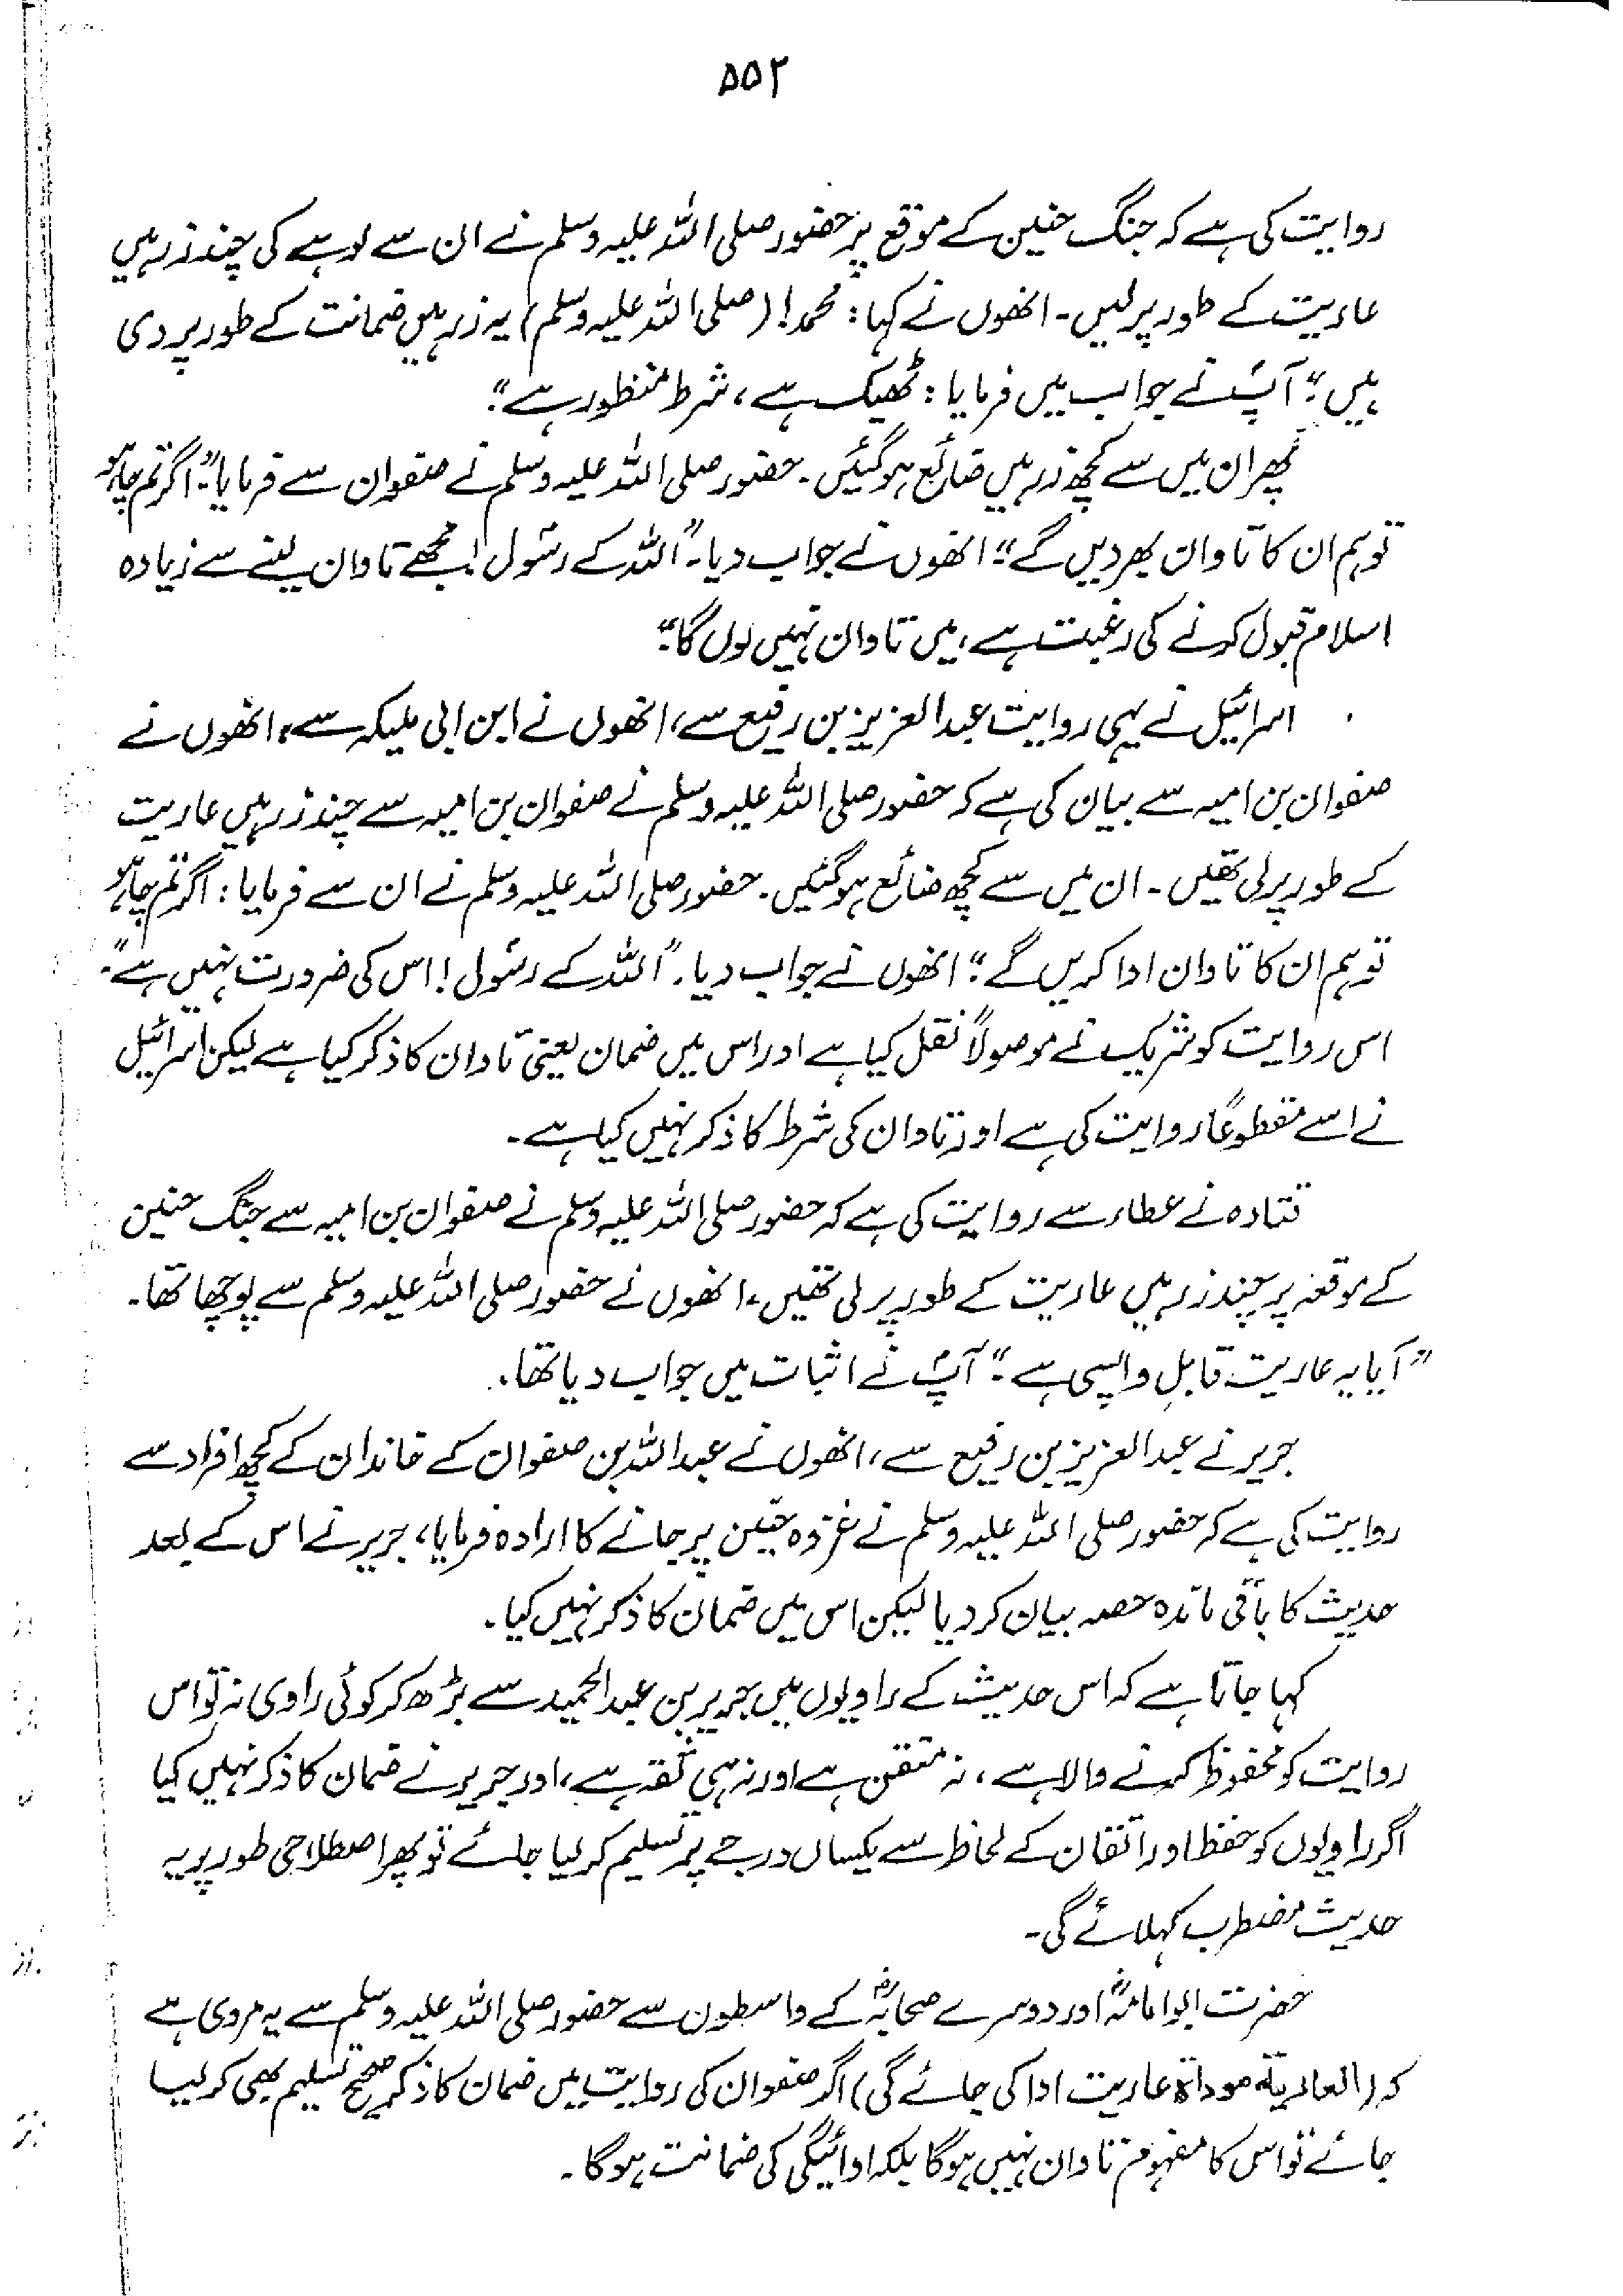 ۵۵۲
روایت کی ہے کہ جنگ حنین کے موقع پر حضور صلی اللہ علیہ وسلم نے ان سے لوہے کی چند زرہیں
عاریت کے طور پر لیں۔ انھوں نے کہا: محمد! (صلی اللہ علیہ وسلم) یہ زرہیں ضمانت کے طور پر دی
ہیں“؛ آپؐ نے جواب میں فرمایا: ٹھیک ہے، شرط منظور ہے“۔
پھر ان میں سے کچھ زرہیں ضائع ہوگئیں۔ حضور صلی اللہ علیہ وسلم نے صفوان سے فرمایا: ”اگر تم چاہو
تو ہم ان کا تاوان بھر دیں گے“؛ انھوں نے جواب دیا۔ ”اللہ کے رسول! مجھے تاوان لینے سے زیادہ
اسلام قبول کرنے کی رغبت ہے، میں تاوان نہیں لوں گا“۔
اسرائیل نے یہی روایت عبدالعزیز بن رفیع سے، انھوں نے ابن ابی ملیکہ سے، انھوں نے
صفوان بن امیہ سے بیان کی ہے کہ حضور صلی اللہ علیہ وسلم نے صفوان بن امیہ سے چند زرہیں عاریت
کے طور پر لی تھیں۔ ان میں سے کچھ ضائع ہوگئیں۔ حضور صلی اللہ علیہ وسلم نے ان سے فرمایا: اگر تم چاہو
تو ہم ان کا تاوان ادا کریں گے“؛ انھوں نے جواب دیا۔ ”اللہ کے رسول! اس کی ضرورت نہیں ہے“۔
اس روایت کو شریک نے موصولاً نقل کیا ہے اور اس میں ضمان یعنی تاوان کا ذکر کیا ہے لیکن اسرائیل
نے اسے مقطوعاً روایت کی ہے اور تاوان کی شرط کا ذکر نہیں کیا ہے۔
قتادہ نے عطاء سے روایت کی ہے کہ حضور صلی اللہ علیہ وسلم نے صفوان بن امیہ سے جنگ حنین
کے موقعہ پر چند زرہیں عاریت کے طور پر لی تھیں، انھوں نے حضور صلی اللہ علیہ وسلم سے پوچھا تھا۔
”آیا یہ عاریت قابلِ واپسی ہے“؛ آپؐ نے اثبات میں جواب دیا تھا۔
جریر نے عبدالعزیز بن رفیع سے، انھوں نے عبداللہ بن صفوان کے خاندان کے کچھ افراد سے
روایت کی ہے کہ حضور صلی اللہ علیہ وسلم نے غزوہ حنین پر جانے کا ارادہ فرمایا، جریر نے اس کے بعد
حدیث کا باقی ماندہ حصہ بیان کردیا لیکن اس میں ضمان کا ذکر نہیں کیا۔
کہا جاتا ہے کہ اس حدیث کے راویوں میں جریر بن عبدالحمید سے بڑھ کر کوئی راوی نہ تو اس
روایت کو محفوظ کرنے والا ہے، نہ متقن ہے اور نہ ہی ثقہ ہے، اور جریر نے ضمان کا ذکر نہیں کیا
اگر راویوں کو حفظ اور اتقان کے لحاظ سے یکساں درجے پر تسلیم کرلیا جائے تو پھر اصطلاحی طور پر یہ
حدیث مضطرب کہلائے گی۔
حضرت ابو امامہؓ اور دوسرے صحابہؓ کے واسطوں سے حضور صلی اللہ علیہ وسلم سے یہ مروی ہے
کہ (العاریۃ موداۃ عاریت ادا کی جائے گی) اگر صفوان کی روایت میں ضمان کا ذکر صحیح تسلیم بھی کر لیا
جائے تو اس کا مفہوم تاوان نہیں ہوگا بلکہ ادائیگی کی ضمانت ہوگا۔